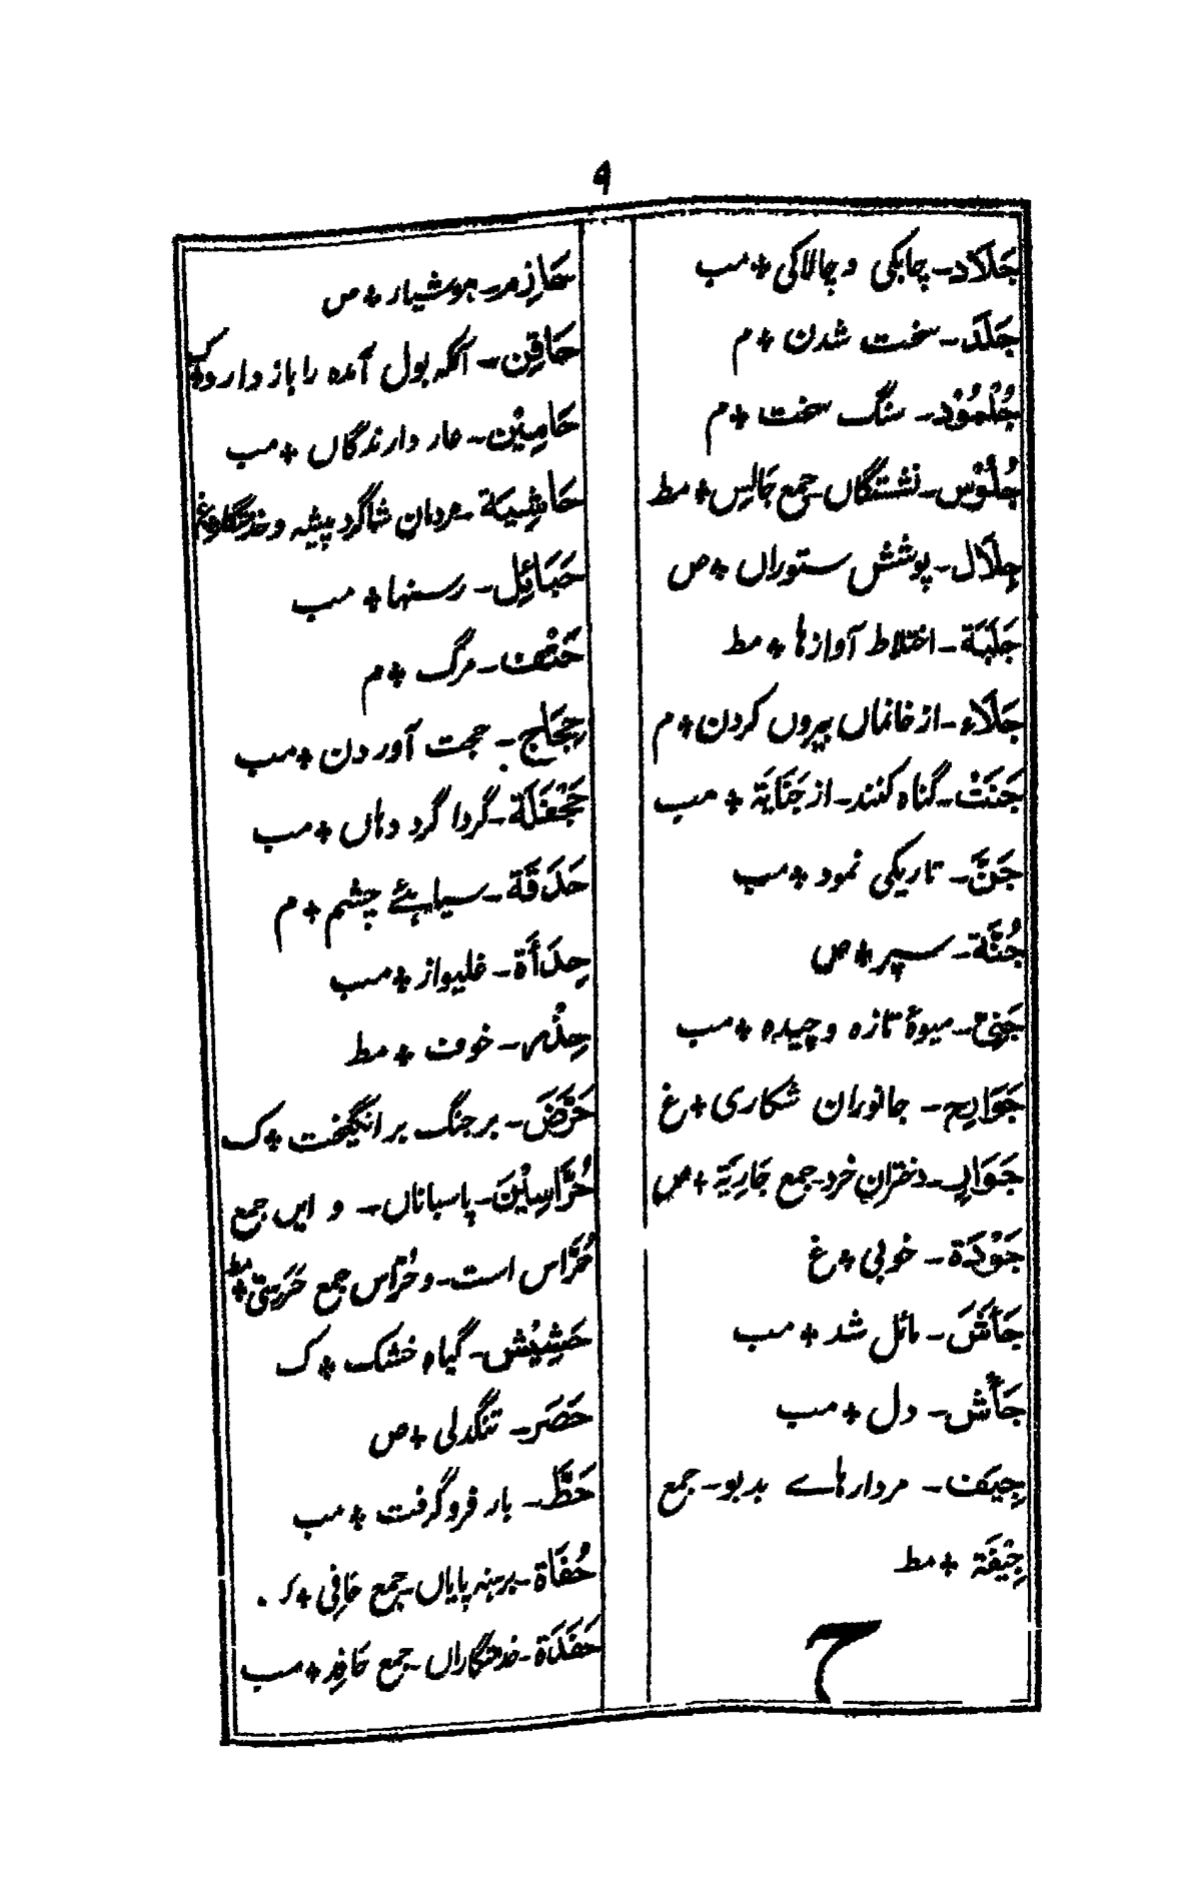 ۹
جَلَادَ۔ چابکی و چالاکی + مب
جَلَدَ۔ سخت شدن + م
جُلْمُوْد۔ سنگ سخت + م
جُلُوْس۔ نشستگاں۔ جمع جَالِس + مط
جِلَال۔ پوشش ستوراں + ص
جَلَبَة۔ اختلاط آوازها + مط
جَلَاء۔ از خانماں بیروں کردن + م
جَنَتْ۔ گناہ کنند۔ از جَنَايَة + مب
جَنَّ۔ تاریکی نمود + مب
جُنَّة۔ سپر + ص
جَنِیّ۔ میوۂ تازہ و چیدہ + مب
جَوَارِح۔ جانوران شکاری + غ
جَوَارِی۔ دخترانِ خرد۔ جمع جَارِيَة + ص
جَوْدَة۔ خوبی + غ
جَأَشَ۔ مائل شد + مب
جَأْش۔ دل + مب
جِيَف۔ مردارهاے بدبو۔ جمع
جِيْفَة + مط
ح
حَازِم۔ ہوشیار + ص
حَاقِن۔ آنکہ بول آمدہ را باز دارد + ک
حَامِيْن۔ عار دارندگاں + مب
حَاشِيَة۔ مردان شاگرد پیشہ و خدمتگار + غ
حَبَائِل۔ رسنہا + مب
حَتْف۔ مرگ + م
حِجَاج۔ حجت آوردن + مب
حَجْفَلَة۔ گردا گرد دہاں + مب
حَدَقَة۔ سیاہئے چشم + م
حِدَأَة۔ غلیواز + مب
حِذْر۔ خوف + مط
حَرَّضَ۔ بر جنگ بر انگیخت + ک
حُرَّاسِيْنَ۔ پاسباناں۔ و ایں جمع
حُرَّاس است۔ و حُرَّاس جمع + مط
حَشِيْش۔ گیاہ خشک + ک
حَصَر۔ تنگدلی + ص
حَطَّ۔ بار فروگرفت + مب
حُفَاة۔ برہنہ پایاں۔ جمع حَافِی + ک
حَفَدَة۔ خدمتگاراں۔ جمع حَافِد + مب